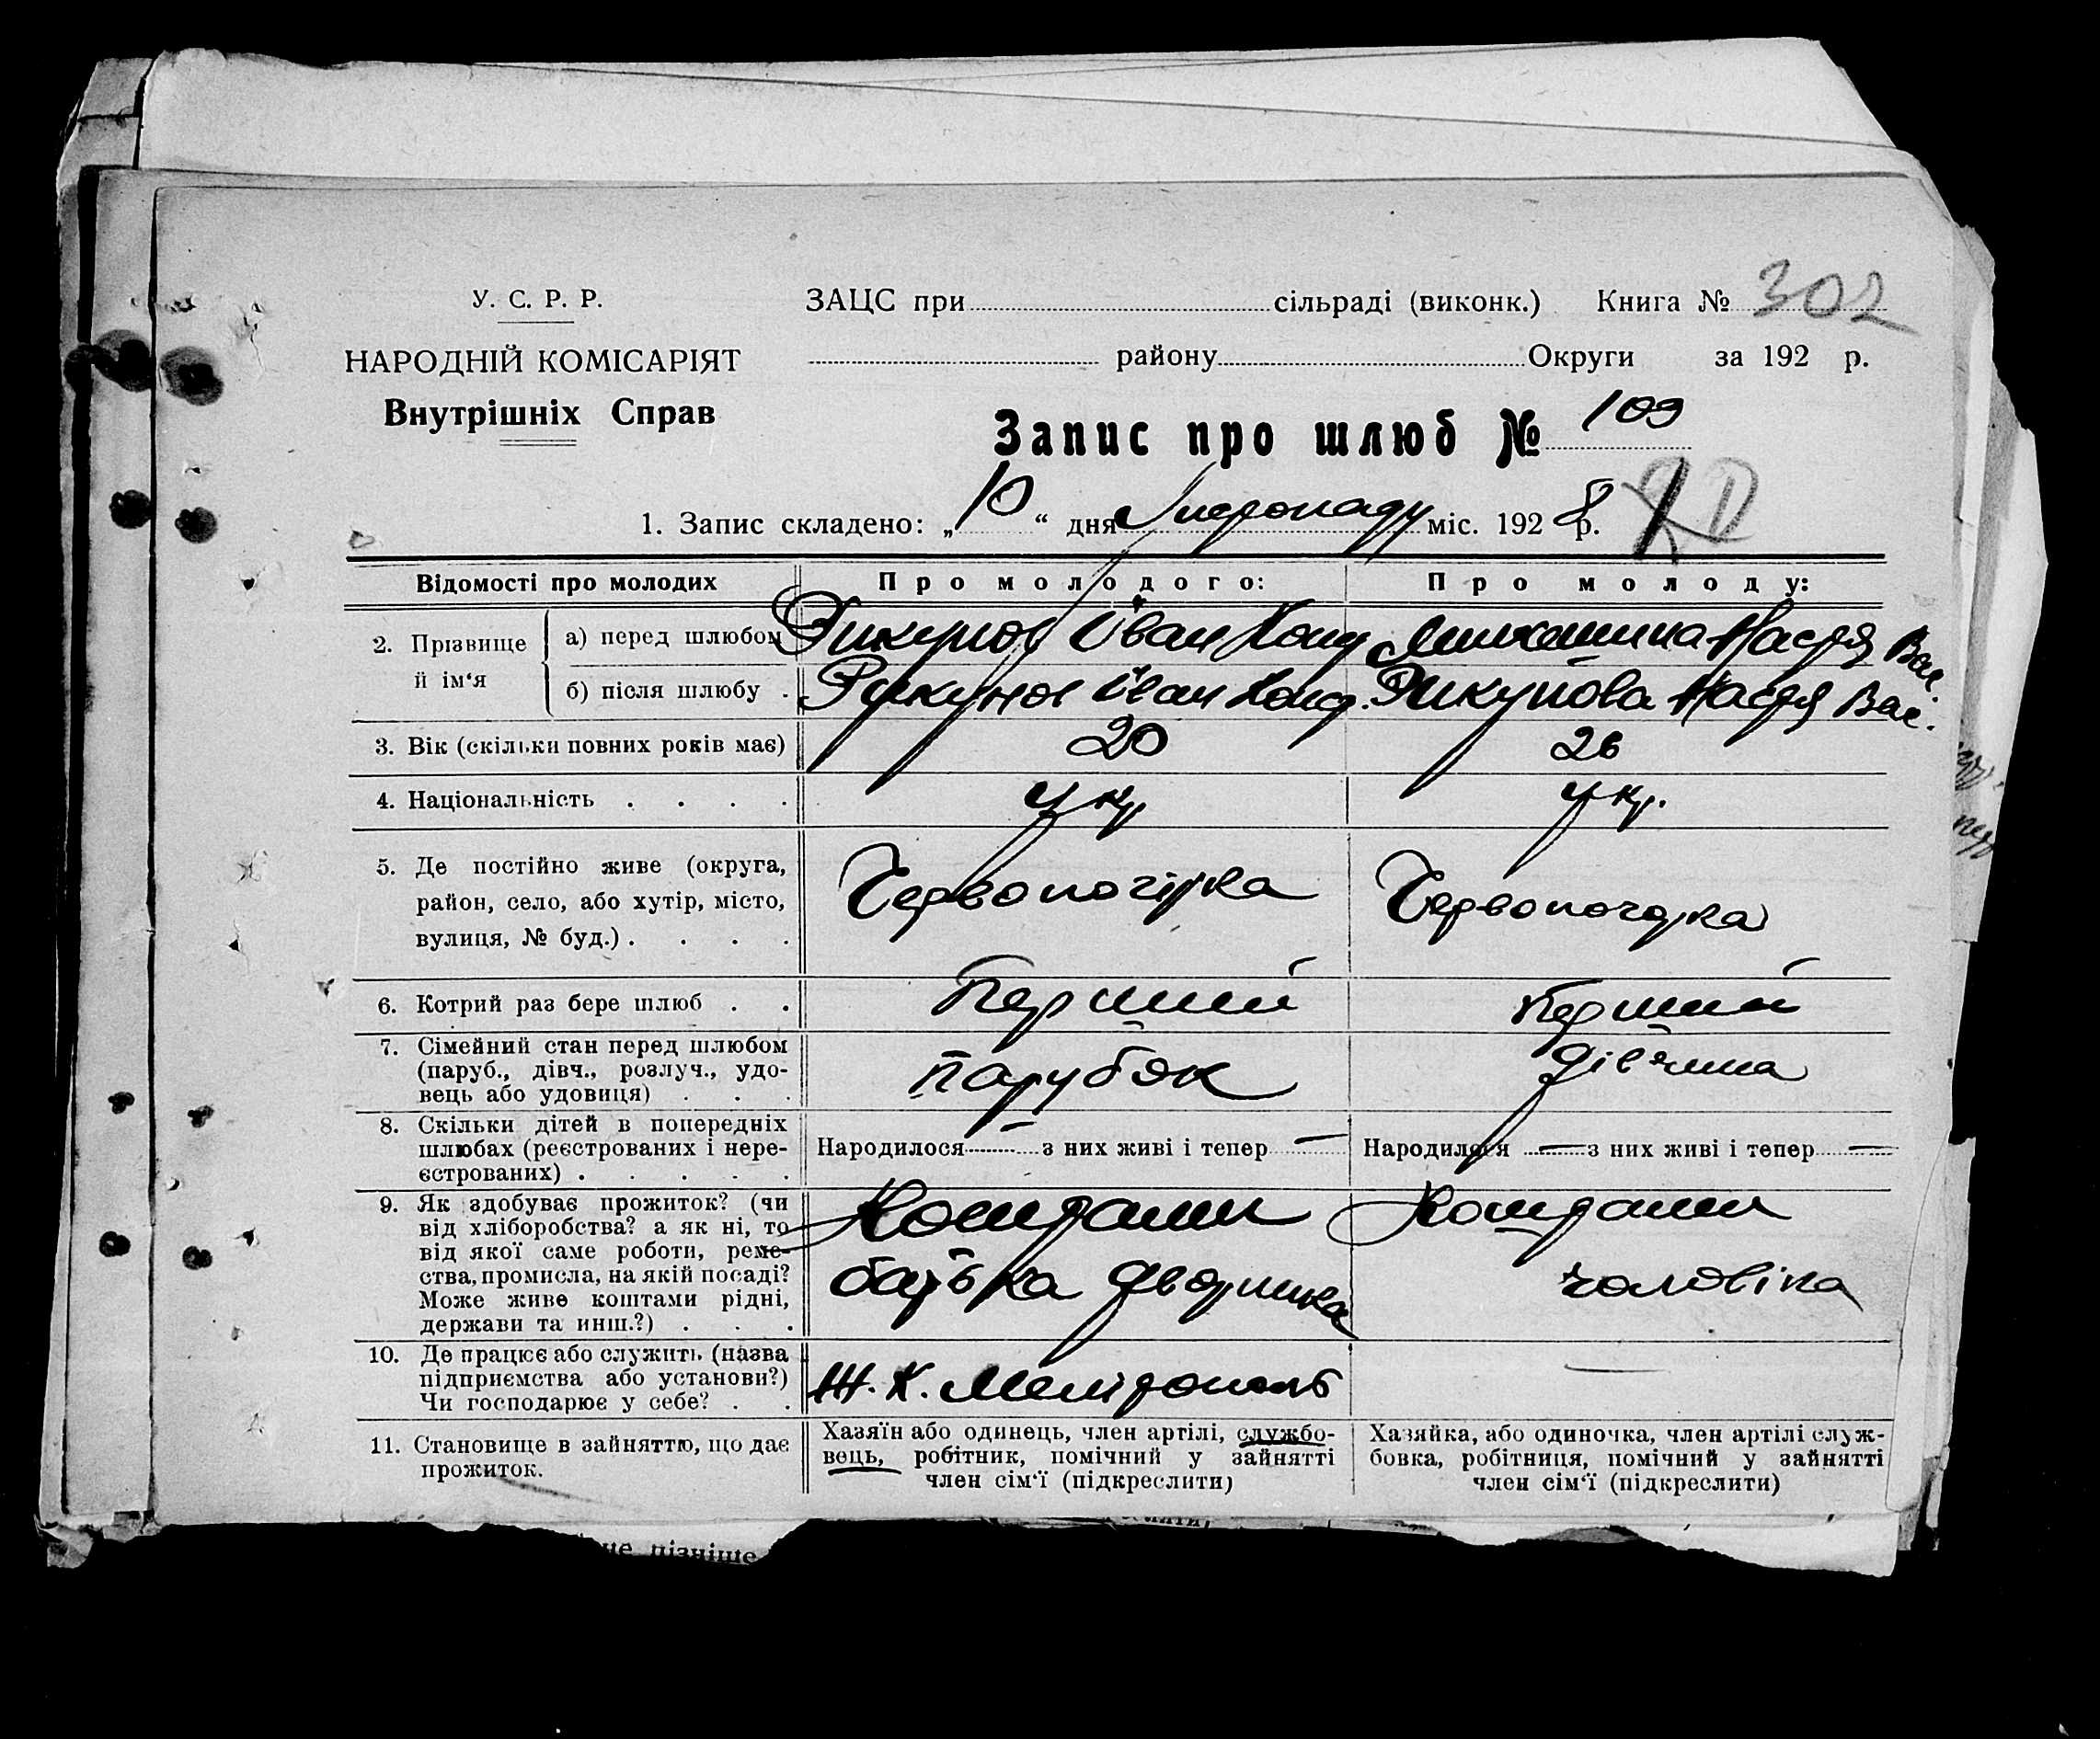 302
У. С. Р. Р.
ЗАЦС при сільраді (виконк.) Книга №
НАРОДНІЙ КОМІСАРІЯТ
району Округи за 192 р.
Внутрішніх Справ
Запис про шлюб № 109
1. Запис складено: „10“ дня Листопаду міс. 1928 р.
Відомості про молодих
Про молодого:
Про молоду:
2. Прізвище й ім‘я
а) перед шлюбом
Іван Конд
Настя Вас.
б) після шлюбу .
Іван Конд.
Дикунова Настя Вас.
3. Вік (скільки повних років має)
20
26
4. Національність . . . .
Укр
Укр.
5. Де постійно живе (округа,
район, село, або хутір, місто,
вулиця, № буд.) . . . .
Червоногірка
Червоногорка
6. Котрий раз бере шлюб . .
Перший
Перший
7. Сімейний стан перед шлюбом
(паруб., дівч., розлуч., удо-
вець або удовиця) . . .
парубок
дівчина
8. Скільки дітей в попередніх
шлюбах (реєстрованих і нере-
єстрованих) . . . . .
Народилося — з них живі і тепер —
Народилося — з них живі і тепер —
9. Як здобуває прожиток? (чи
від хліборобства? а як ні, то
від якої саме роботи, реме-
ства, промисла, на якій посаді?
Може живе коштами рідні,
держави та инш.?) . . .
Коштами
батька дворника
Коштами
чоловіка
10. Де працює або служить (назва
підприємства або установи?)
Чи господарює у себе? . .
Ж. К. Мелітополь
—
11. Становище в зайняттю, що дає
прожиток.
Хазяїн або одинець, член артілі, службо-
вець, робітник, помічний у зайнятті
член сім‘ї (підкреслити)
Хазяйка, або одиночка, член артілі служ-
бовка, робітниця, помічний у зайнятті
член сім‘ї (підкреслити)
пізніше